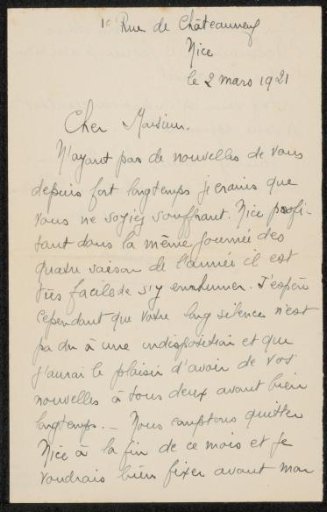 Rue de Châteauneuf
Nice
le 2 mars 1921
Cher Monsieur.
N'ayant pas de nouvelles de vous
depuis fort longtemps je crains que
vous ne soyiez souffrant. Nice profi-
tant dans la même journée des
quatre saison de l'année il est
très facile de s'y enrhumer. J'espère
cependant que votre long silence n'est
pas du à une indisposition et que
j'aurai le plaisir d'avoir de vos
nouvelles à tous deux avant bien
longtemps. — Nous comptons quitter
Nice à la fin de ce mois et je
voudrais bien fixer avant mon